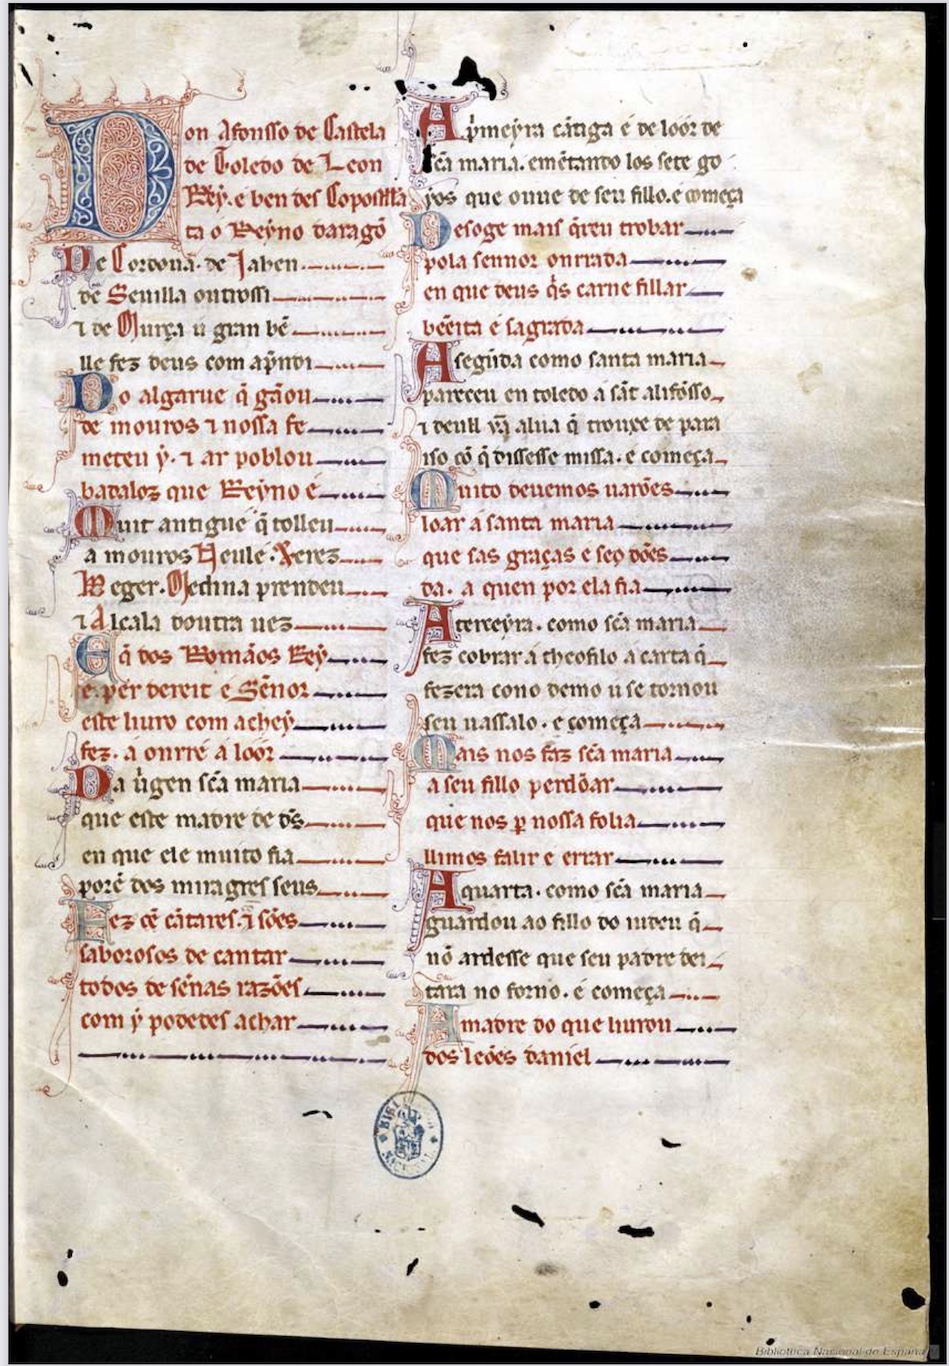 Don Afonsso de Castela
de Toledo de Leon
Rey. e ben des Copostela
ta o Reyno daragõ
De Cordoua. de Jahen
de Seuilla outrossi
⁊ de Murça u gran bẽ
lle fez deus com ap̃ndi
Do algarue q̃ gãou
de mouros ⁊ nossa fe
meteu ẏ. ⁊ ar poblou
badaloz que Reyno é
Muit antigue q̃ tolleu
a mouros Neule. Xerez
Beger. Medina prendeu
⁊ Alcala doutra uez
E q̃ dos Romãos Rey
é. per dereit e Sẽnor
este liuro com achey
fez. a onrr e a loor
Da uirgen sc̃a maria
que este madre de d̃s
en que ele muito fia
porẽ dos miragres seus
Fez cẽ cãtares. ⁊ sões
saborosos de cantar
todos de sẽnas razões
com ẏ podedes achar
A p̃meyra cãtiga é de loor de
sc̃a maria. emẽtando los sete go
yos que ouue de seu fillo. e começa
Des oge mais q̃reu trobar
pola sennor onrrada
en que deus q̃s carne fillar
bẽeita e sagrada
A segũda como santa maria
pareceu en toledo a sãt alifõsso
⁊ deull ũa alua q̃ trouxe de para
iso cõ q̃ dissesse missa. e começa
Muito deuemos uarões
loar a santa maria
que sas graças e seẏ dões
da. a quen por ela fia
A terceyra. como sc̃a maria
fez cobrar a theofilo a carta q̃
fezera cono demo u se tornou
seu uassalo. e começa
Mais nos faz sc̃a maria
a seu fillo perdõar
que nos p̱ nossa folia
llimos falir e errar
A quarta. como sc̃a maria
guardou ao fillo do iudeu q̃
nõ ardesse que seu padre dei
tara no forno. e começa
A madre do que liurou
dos leões daniel
Biblioteca Nacional de España